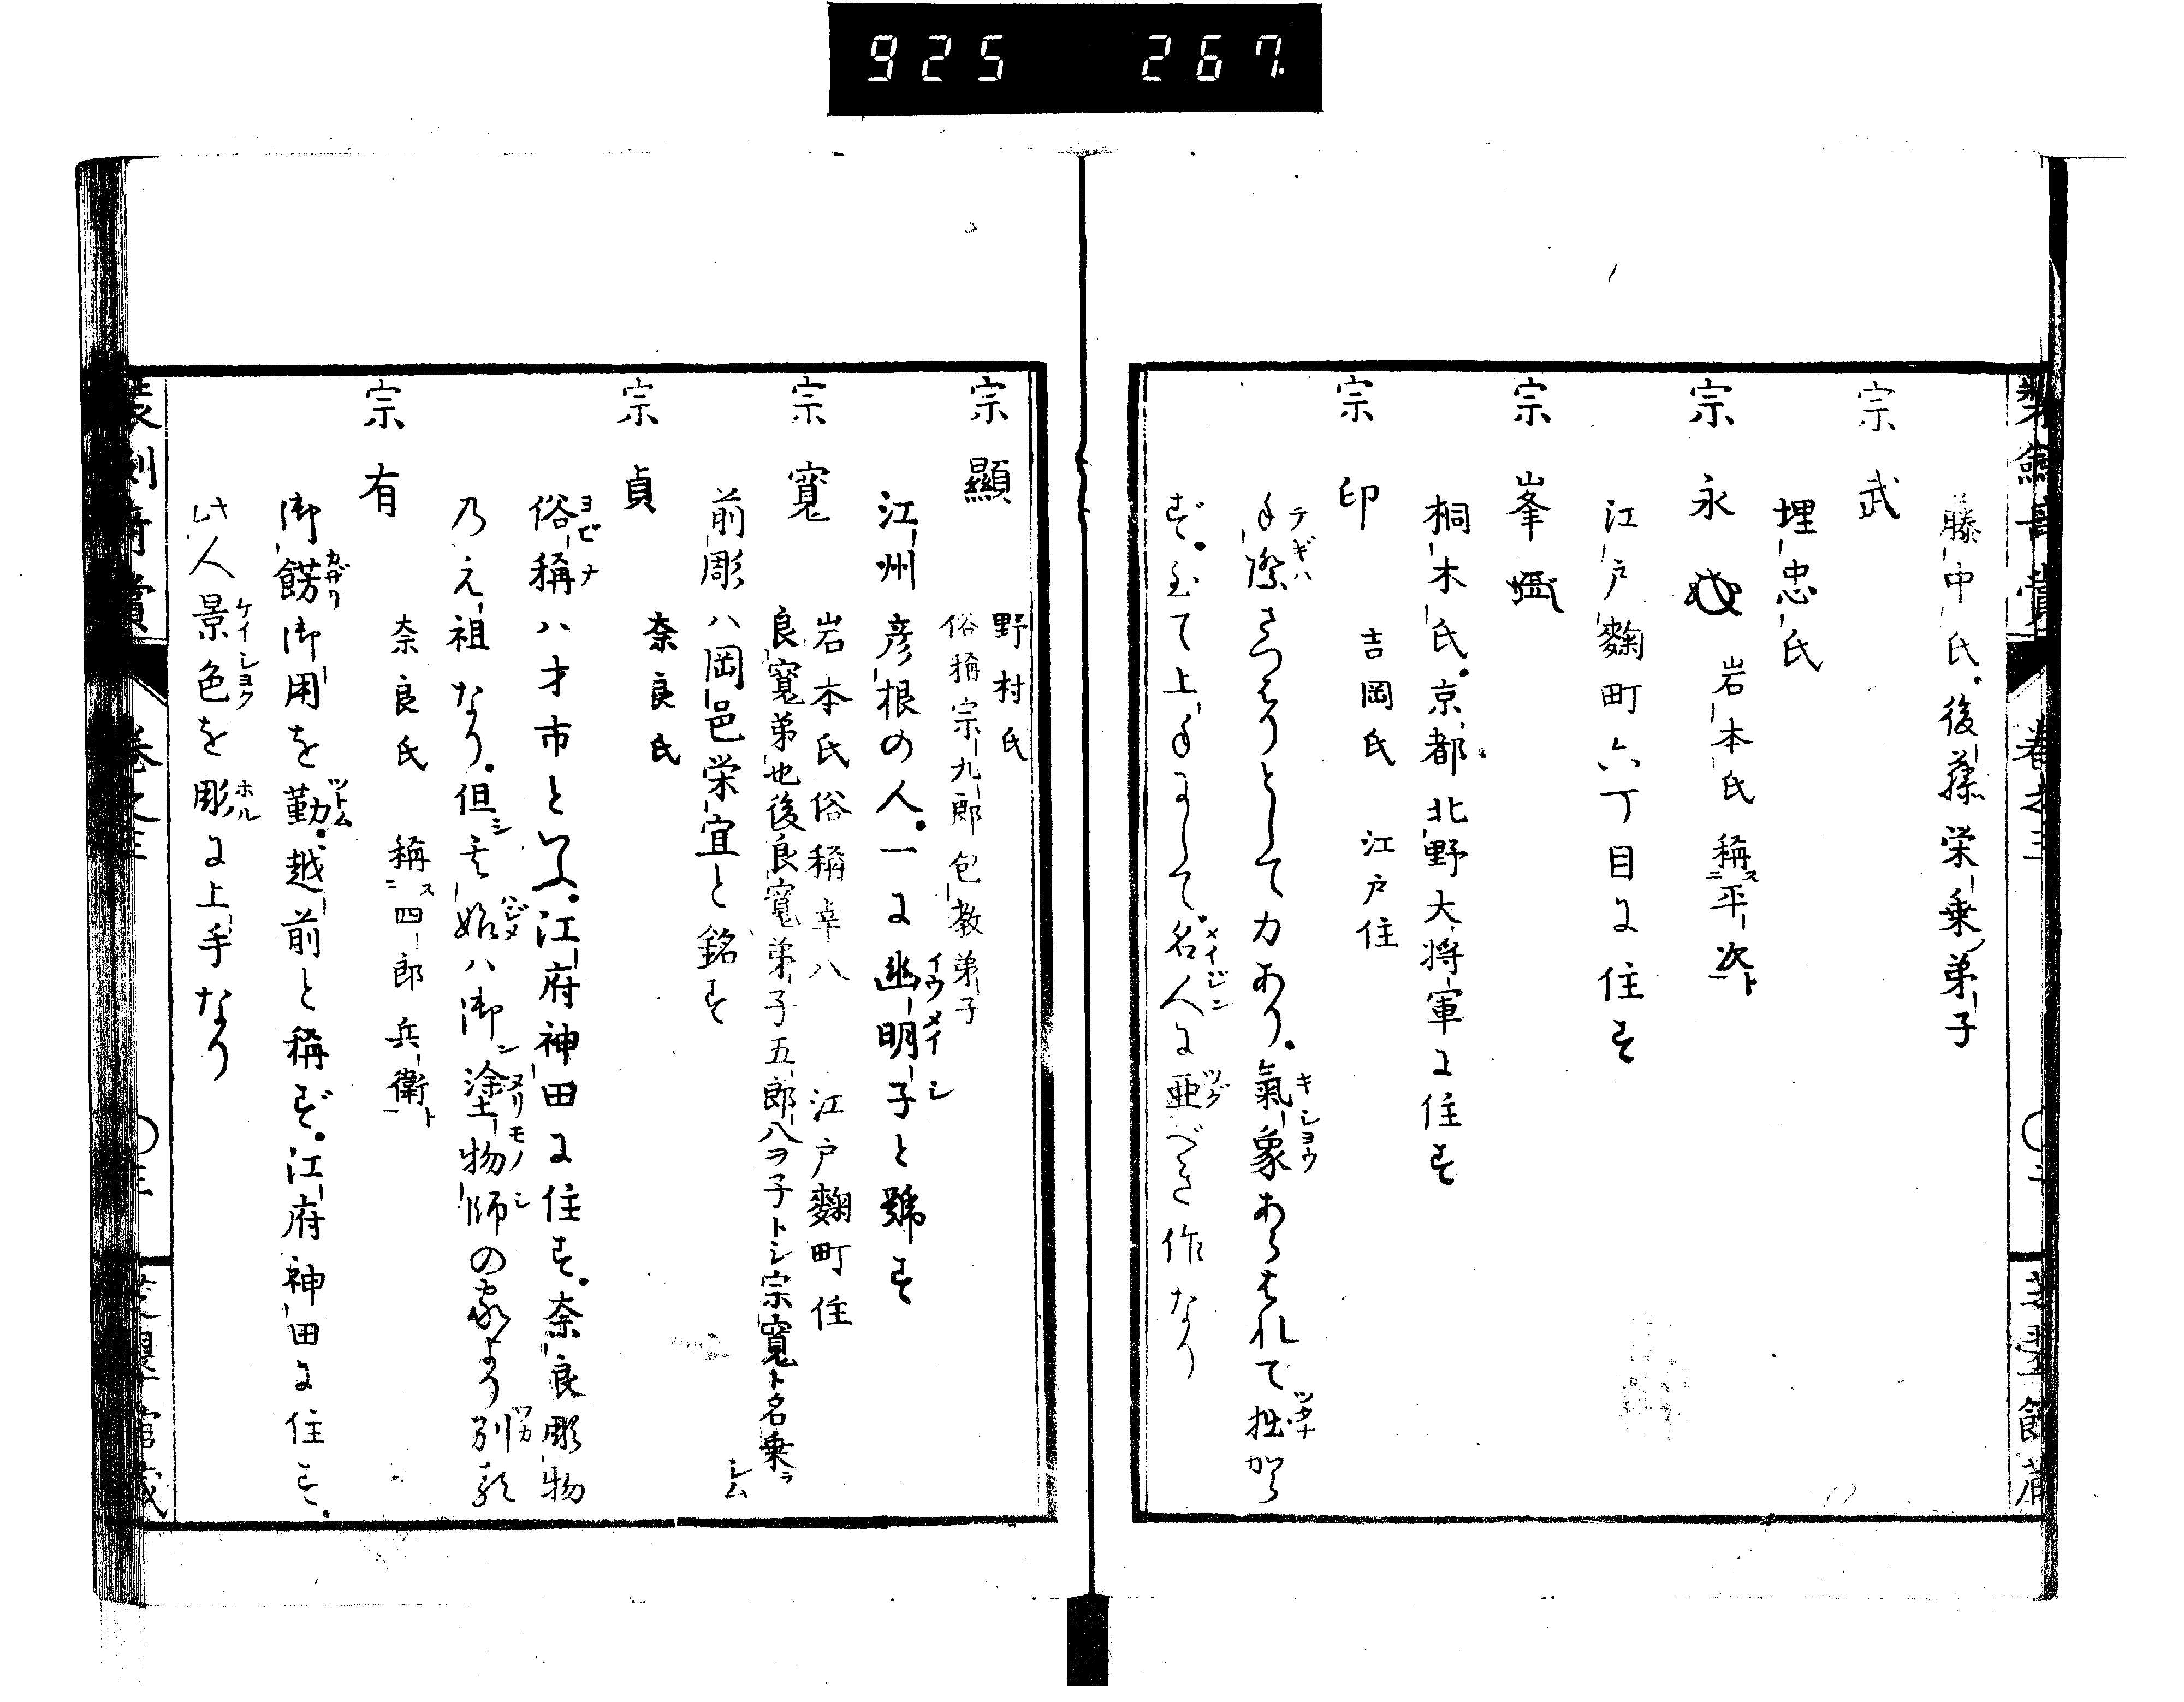 925 267
藤中氏。後藤栄乗弟子
宗武
埋忠氏
宗永 岩本氏 稱ス二平次ト一
江戸麹町六丁目に住す
宗峯
桐木氏。京都北野大将軍に住す
宗印 吉岡氏 江戸住
手際さつはりとして力あり。氣象あらはれて拙から
ず。至て上手にして名人に亜べき作なり
宗顯 野村氏
俗稱宗九郎包教弟子
江州彦根の人。一に幽明子と號す
宗寛 岩本氏俗稱幸八 江戸麹町住
良寛弟也後良寛弟子五郎八ヲ子トシ宗寛ト名乗ラシム
前彫ハ岡邑栄宜と銘す
宗貞 奈良氏
俗稱ハ才市といふ。江府神田に住す。奈良彫物
乃元祖なり。但シ始ハ御塗物師の家より別
宗有 奈良氏 稱ス二四郎兵衛ト一
御餝御用を勤。越前と稱ず。江府神田に住す。
此人景色を彫に上手なり
卷之三